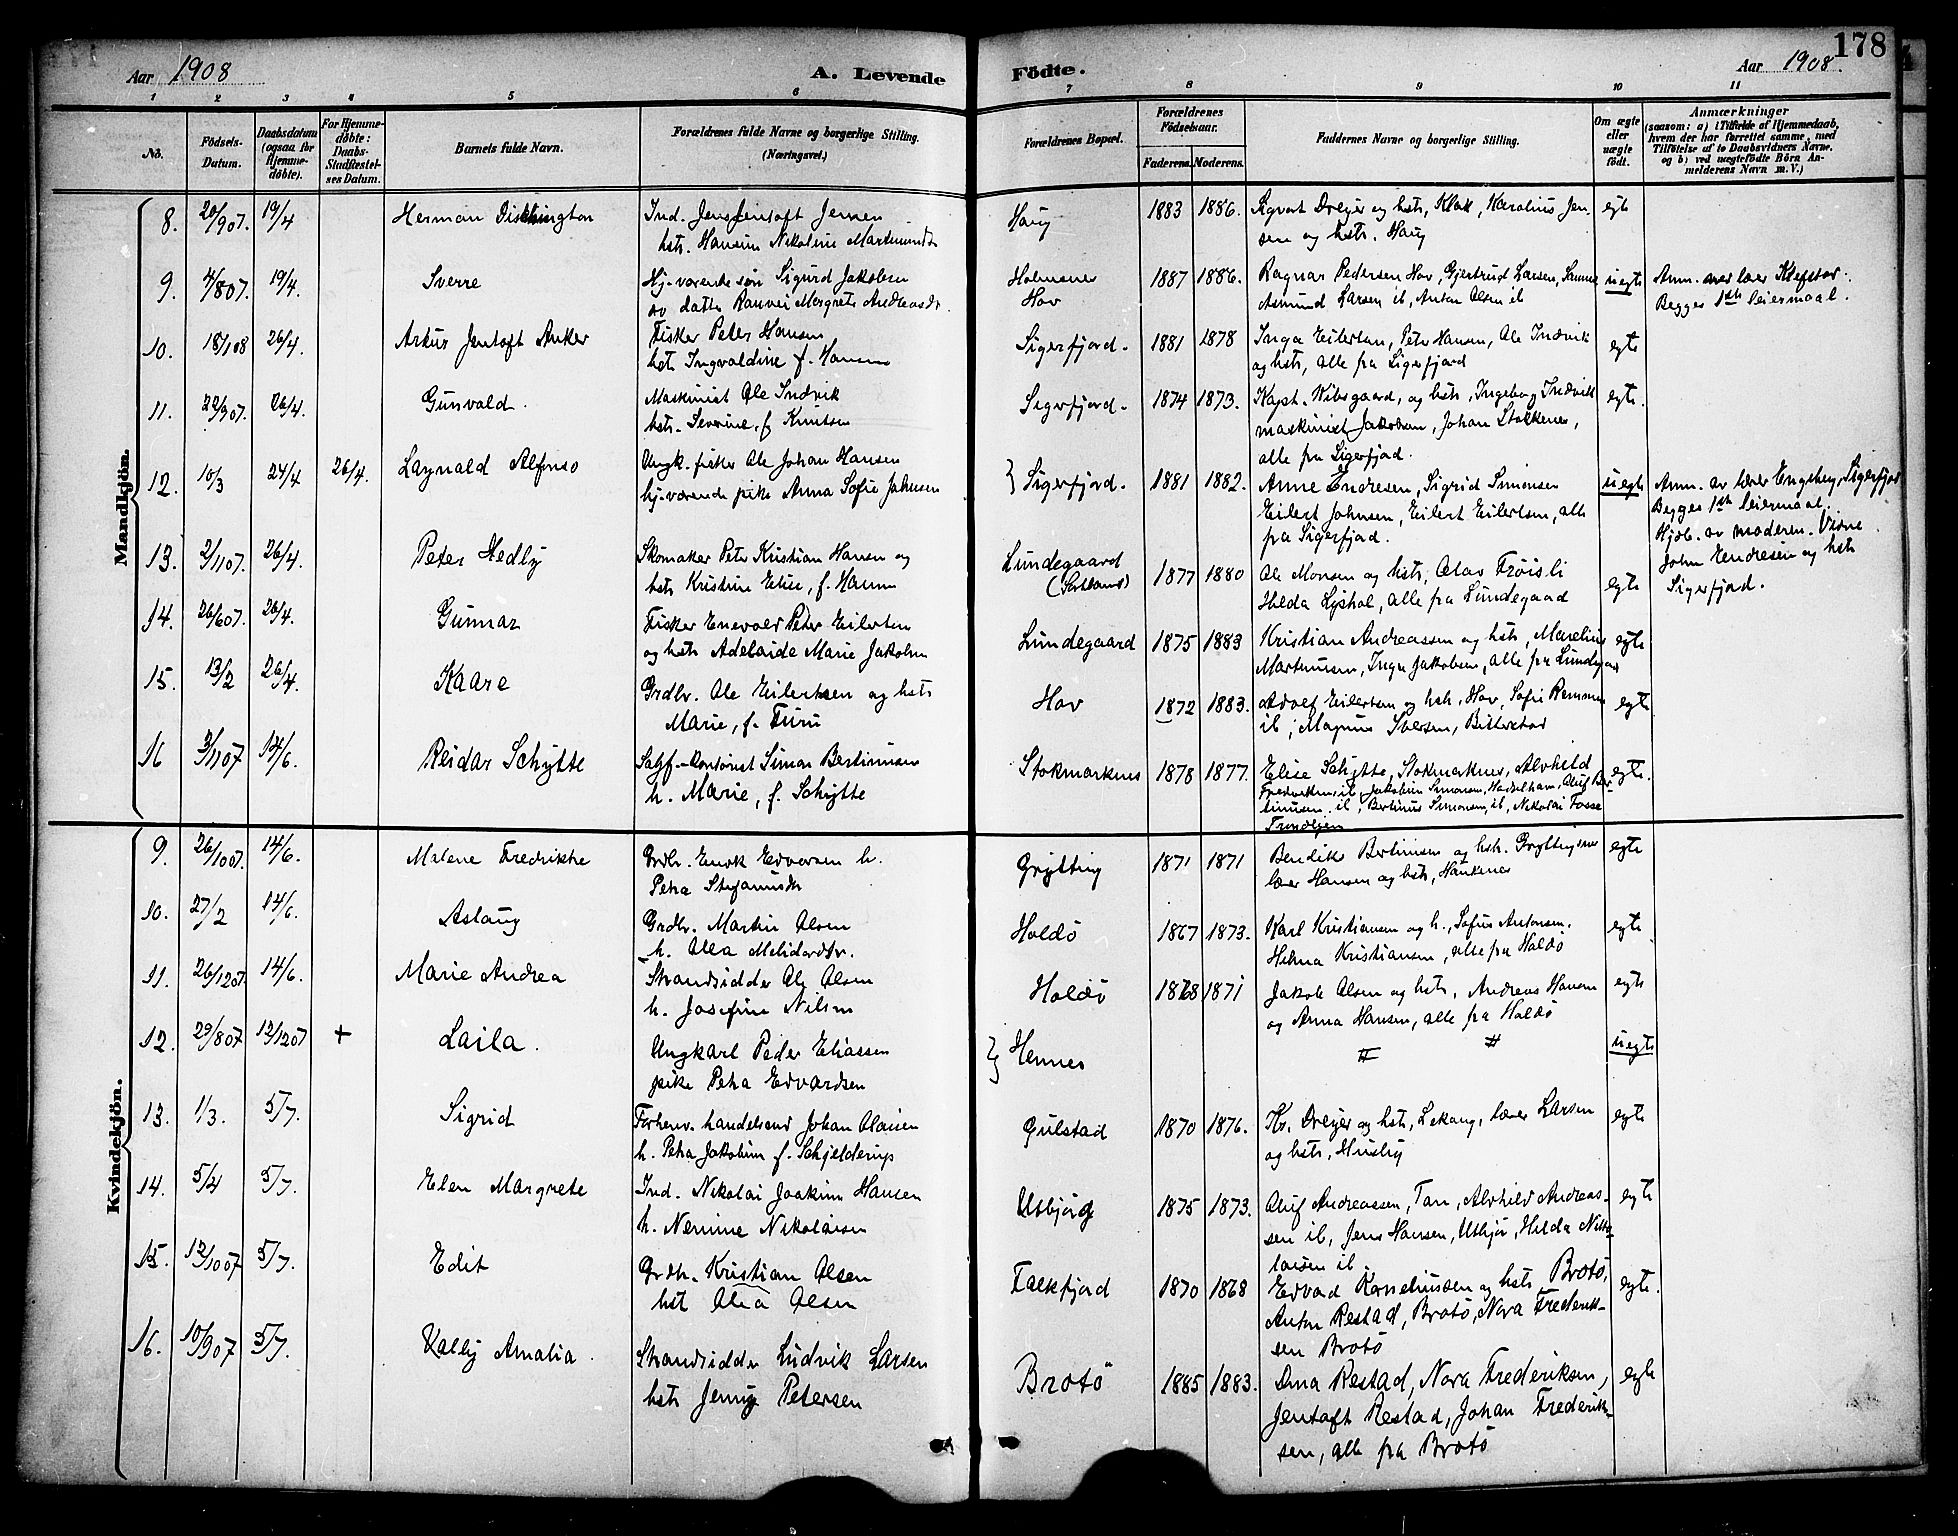 178
Aar 1908 A. Levende Födte. Aar 1908.
1 2 3 4 5 6 7 8 9 10 11
No.
Födsels-
Datum.
Daabsdatum
(ogsaa for
Hjemme-
döbte).
For Hjemme-
döbte:
Daabs-
Stadfæstel-
ses Datum.
Barnets fulde Navn.
Forældrenes fulde Navne og borgerlige Stilling.
(Næringsvei.)
Forældrenes Bopæl.
Forældrenes
Födselsaar.
Faderens. Moderens.
Faddernes Navne og borgerlige Stilling.
Om ægte
eller
uægte
födt.
Anmærkninger
(saasom: a) i Tilfælde af Hjemmedaab,
hvem der har forrettet samme, med
Tilföielse af to Daabsvidners Navne.
og b) ved uægtefödte Börn An-
melderens Navn m. V.)
Mandkjön.
8. 20/9 07. 19/4 Herman Dishington Ind. Jens Jentoft Jensen Haug 1883 1886. Sigvart Dreyer og hstr, Klak, Karolius Jen- egte
hstr. Hansine Nikoline Martinusdr sen og hstr. Haug
9. 4/8 07. 19/4. Sverre Hj-værende søn Sigurd Jakobsen Holmenes 1887 1886. Ragnar Pedersen Hov, Gjertrud Larsen, uegte Anm. av lærer Klefstad.
av datter Ranvei Margrete Andreasdr. Hov Asmund Larsen ib, Anton Olsen ib Begges 1ste leiermaal.
10. 18/1 08 26/4. Artur Jentoft Anker Fisker Peter Hansen Sigerfjord. 1881 1878 Inga Eilertsen, Peter Hansen, Ole Indvik egte
hstr Ingvaldine f. Hansen og hstr, alle fra Sigerfjord
11. 22/9 07. 26/4. Gunvald. Maskinist Ole Indvik Sigerfjord. 1874 1873. Kapt. Wibsgaard, og hstr, Ingeborg Indvik egte.
hstr. Severine, f Knutsen maskinist Jakobsen, Johan Stokkenes,
alle fra Sigerfjord.
12. 10/3 24/4 26/4. Laynald Alfonso Ungk. fisker Ole Johan Hansen } Sigerfjord. 1881 1882. Anne Endresen, Sigrid Simonsen uegte Anm. av lærer Engsberg, Sigerfjord
hj-værende pike Anna Sofie Johnsen Eilert Johnsen, Eilert Eilertsen, alle Begges 1ste leiermaal.
fra Sigerfjord. Hjdb. av moderen. Vidne
John Endresen og hstr
Sigerfjord.
13. 2/11 07. 26/4. Peter Hedly Skomaker Peter Kristian Hansen og Lundegaard 1877 1880 Ole Monsen og hstr, Olav Frøisli egte
hstr Kristine Elise, f. Hansen (Sortland) Hilda Lyshol, alle fra Lundegaard
14. 26/6 07. 26/4. Gunnar Fisker Enevold Peter Eilertsen Lundegaard 1875 1883 Kristian Andreassen og hstr, Marelius egte
og hstr Adelaide Marie Jakobsen Martinusen, Inga Jakobsen, alle fra Lundegaard
15. 13/2 26/4. Kaare Grdbr. Ole Eilertsen og hstr Hov 1872 1883. Adolf Eilertsen og hstr, Hov, Sofie Remmen egte
Marie, f. Furu ib; Magnus Iversen, Bitterstad
16 3/11 07 14/6. Reidar Schytte Sagf.-Kontorist Simon Bertinusen Stokmarknes 1878 1877. Elise Schytte, Stokmarknes, Alvhild egte.
h. Marie, f. Schytte Fredriksen, ib, Jakobine Simonsen, Hadselhavn, Oluf Ber-
tinusen. ib, Bertinus Simonsen, ib, Nikolai Fosse
Trondhjem
Kvindekjön.
9. 26/10 07. 14/6. Malene Fredrikke Grdbr. Enok Edvorsen h. Grytting 1871 1871 Bendiks Bertinusen og hstr. Grytting og egte
Petra Stefanusdtr lærer Hansen og hstr, Haukenes
10. 27/2 14/6. Aslaug Grdbr. Martin Olsen Holdö 1867 1873. Karl Kristiansen og h., Sofus Antonsen, egte.
h. Olea Melidordtr. Helma Kristiansen, alle fra Holdö
11. 26/12 07. 14/6. Marie Andrea Strandsidder Ole Olsen Holdö 1868 1871 Jakob Olsen og hstr, Andreas Hansen egte
h. Josefine Nilsen og Anna Hansen, alle fra Holdö
12. 29/8 07 12/12 07 + Laila. Ungkarl Peder Eliassen } Hennes uegte
pike Petra Edvardsen
13. 1/3. 5/7. Sigrid Forhenv. handelsmand Johan Claisen Gulstad 1870 1876. Kr. Dreyer og hstr, Lekang, lærer Larsen egte
h. Petra Jakobine f. Schjelderup og hstr, Husby
14. 5/4 5/7. Elen Margrete Ind. Nikolai Joakim Hansen Utbjørg 1875 1873. Oluf Andreassen, Tan, Alvhild Andreas- egte
h. Nennine Nikolaisen sen ib, Jens Hansen, Utbjør, Hilda Niko-
laisen ib.
15. 12/10 07 5/7. Edit Grdbr. Kristian Olsen Falkfjord 1870 1868 Edvard Korneliussen og hstr Brotö, egte.
hst Olea Olsen Anton Restad, Brotö, Nora Frederik-
sen Brotö
16. 10/9 07 5/7. Vally Amalia. Strandsidder Ludvik Larsen Brotö 1885 1883. Dina Restad, Nora Frederiksen, egte
hstr Jenny Petersen Jentoft Restad, Johan Frederik-
sen, alle fra Brotö